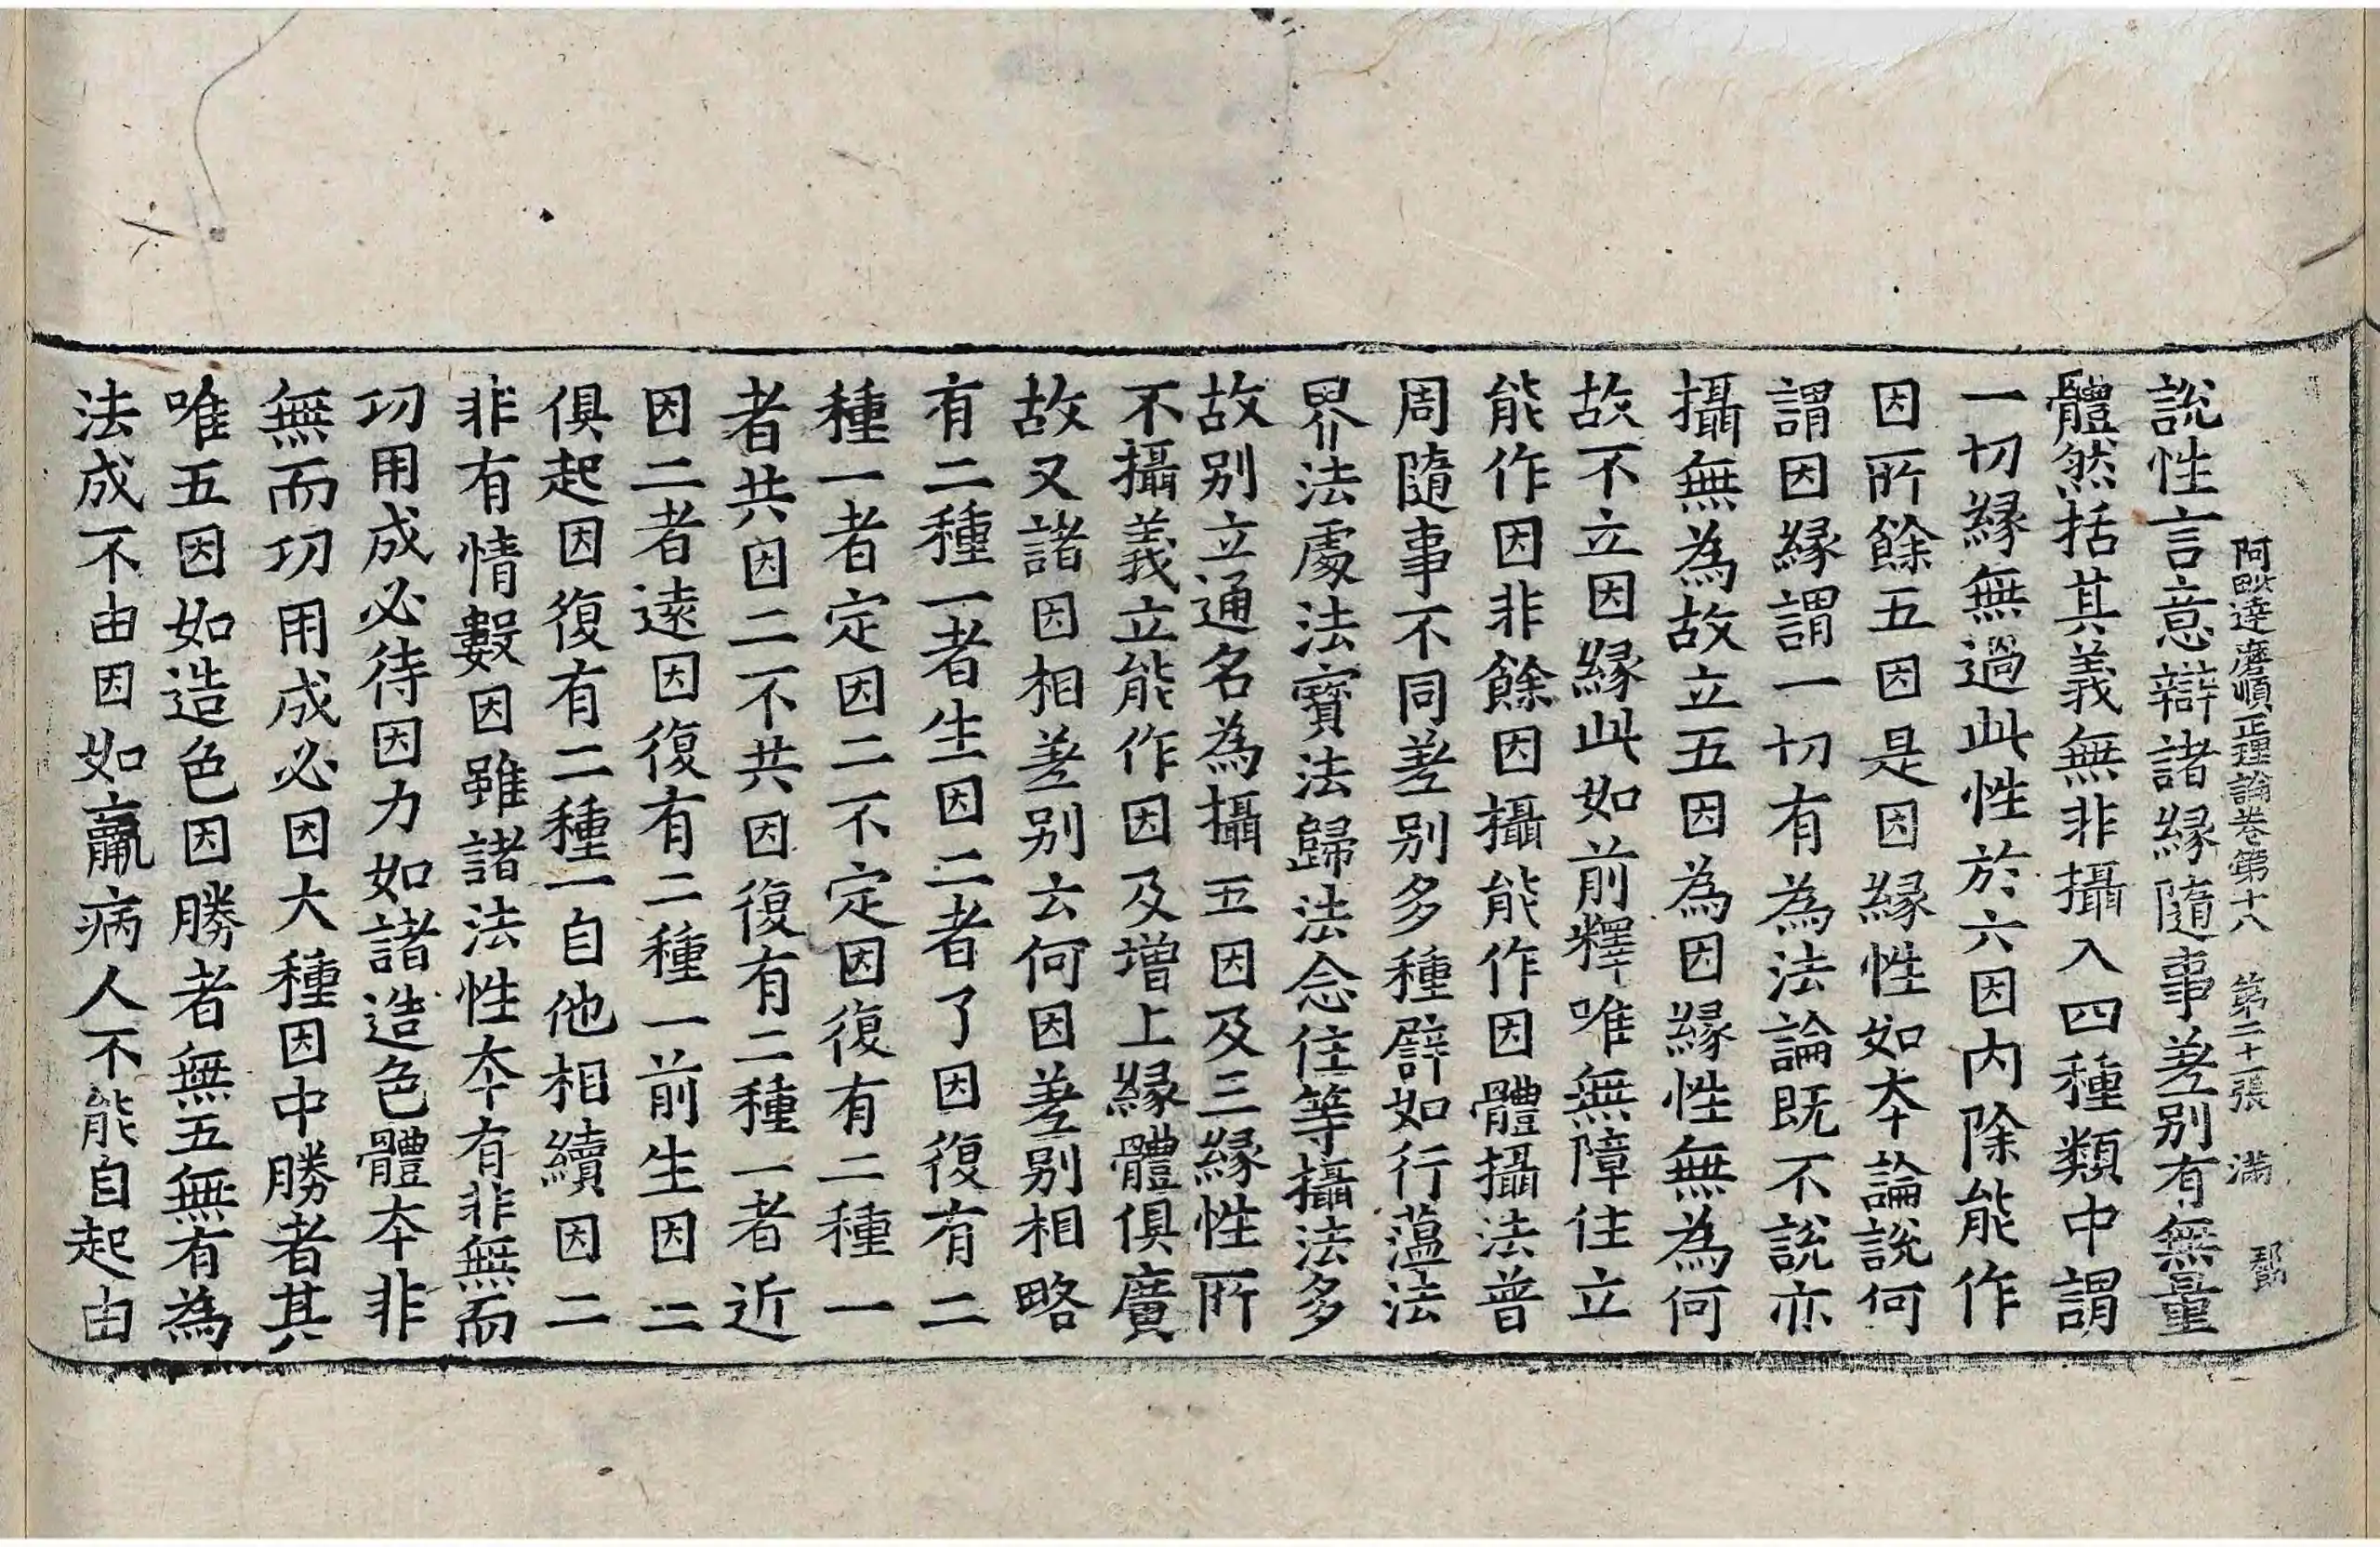 阿毗達磨順正理論卷第十八 第二十一張 滿
說性言意辯諸緣隨事差別有無量
體然括其義無非攝入四種類中謂
一切緣無過此性於六因內除能作
因所餘五因是因緣性如本論說何
謂因緣謂一切有為法論既不說亦
攝無為故立五因為因緣性無為何
故不立因緣此如前釋唯無障住立
能作因非餘因攝能作因體攝法普
周隨事不同差別多種礔如行蘊法
界法處法寶法歸法念住等攝法多
故別立通名為攝五因及三緣性所
不攝義立能作因及增上緣體俱廣
故又諸因相差別云何因差別相略
有二種一者生因二者了因復有二
種一者定因二不定因復有二種一
者共因二不共因復有二種一者近
因二者遠因復有二種一前生因二
俱起因復有二種一自他相續因二
非有情數因雖諸法性本有非無而
功用成必待因力如諸造色體本非
無而功用成必因大種因中勝者其
唯五因如造色因勝者無五無有為
法成不由因如羸病人不能自起由